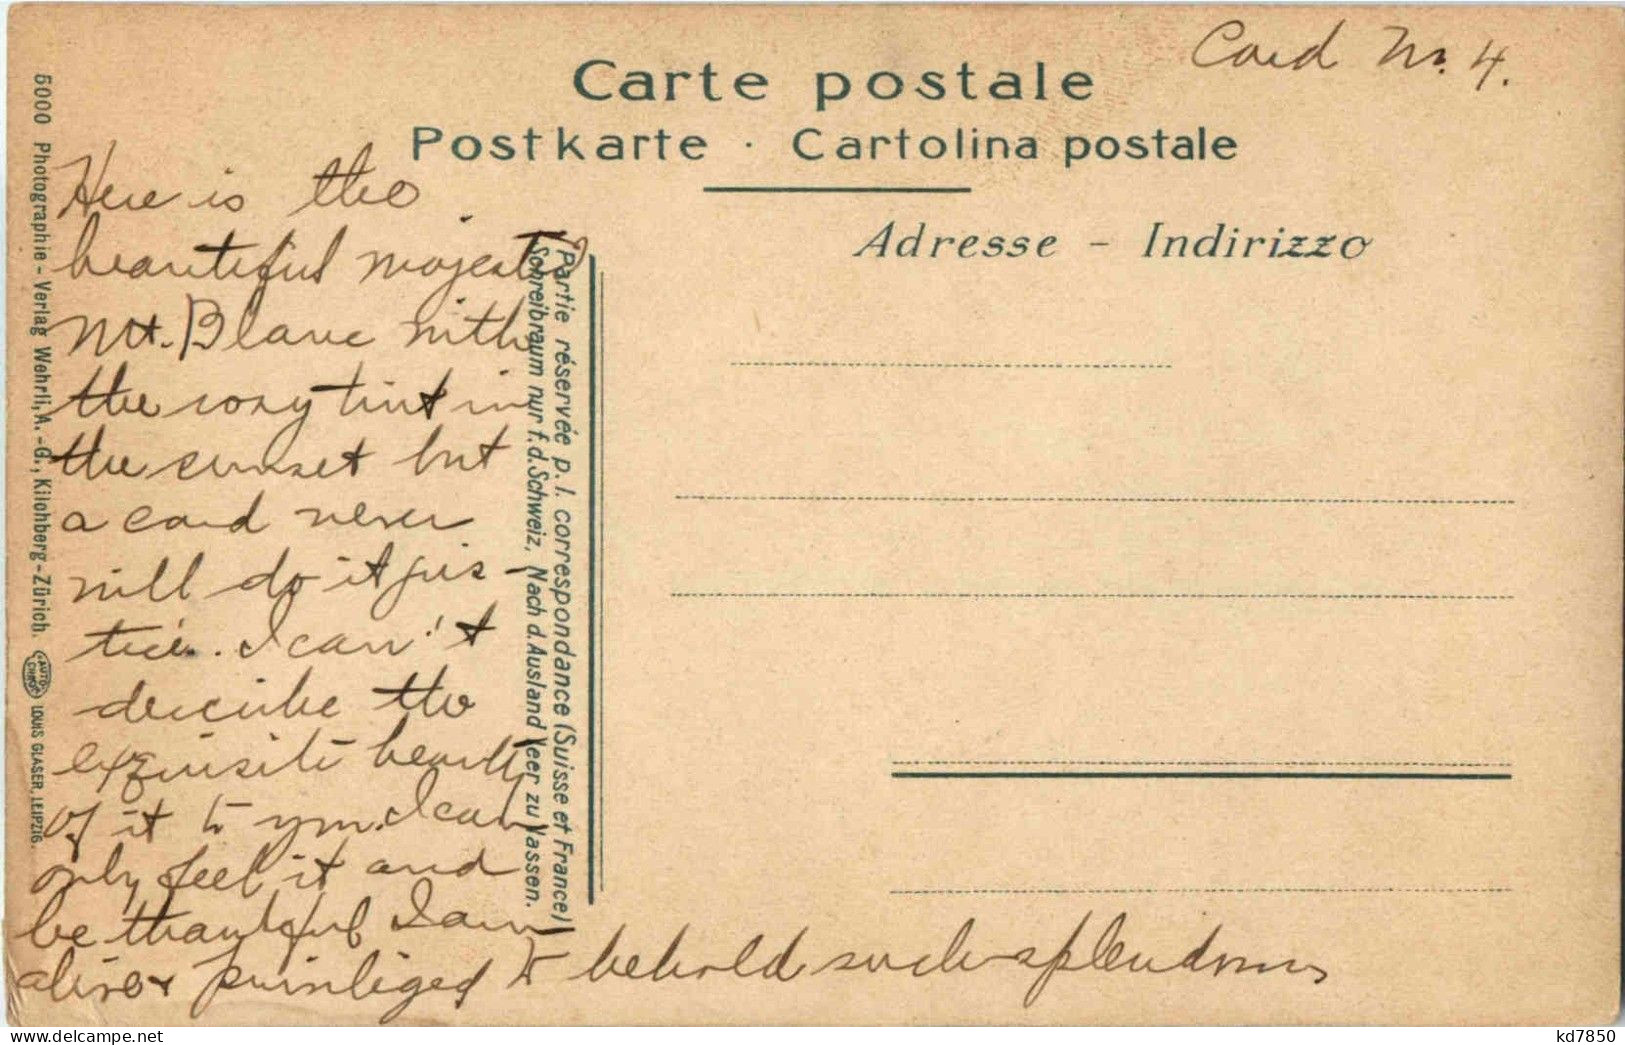 Card No. 4.
Carte postale
Postkarte · Cartolina postale
Adresse - Indirizzo
Here is the
beautiful majestic
Mt. Blanc with
the rosy tint in
the sunset but
a card never
will do it jus-
tice. I can't
describe the
exquisite beauty
of it to you. I can
only feel it and
be thankful I am
alive & privileged to behold such splendors
Partie réservée p. l. correspondance (Suisse et France)
Schreibraum nur f. d. Schweiz, Nach d. Ausland leer zu lassen.
5000 Photographie-Verlag Wehrli, A.-G., Kilchberg-Zürich.
AUTO-CHROM
LOUIS GLASER, LEIPZIG.
kd7850